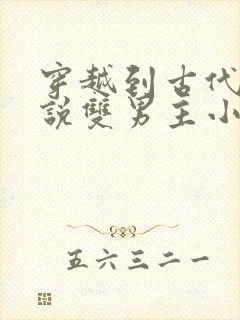 穿越到古代
說雙男主小
五六三二一